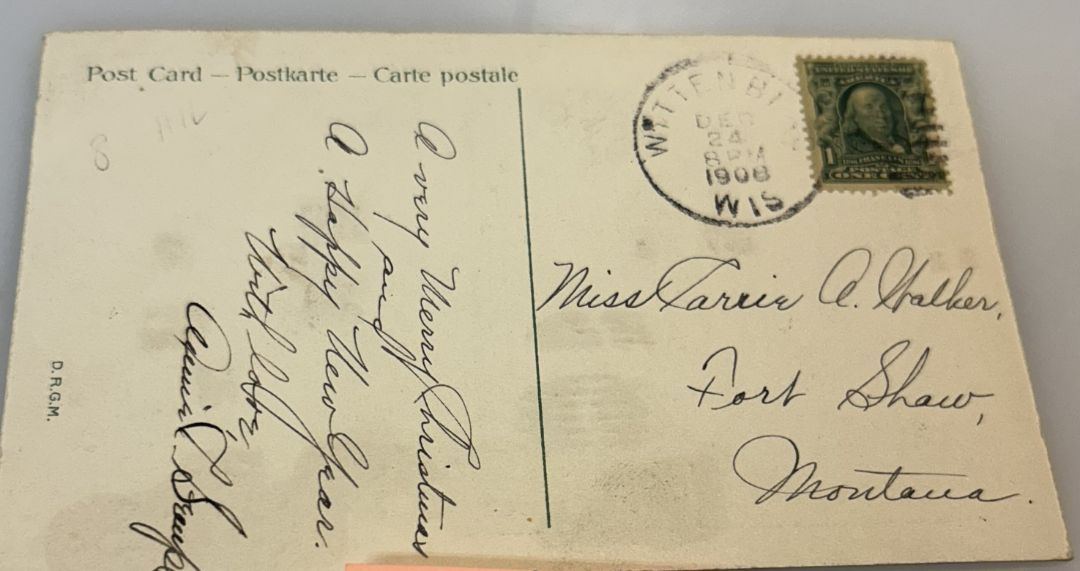 Post Card – Postkarte – Carte postale
A very Merry Christmas
and
A Happy New Year.
With love
Annie
D.R.G.M.
WITTENB
DEC
24
8 PM
1908
WIS
UNITED STATES OF
AMERICA
1
POSTAGE
ONE CENT
Miss Carrie A. Walker,
Fort Shaw,
Montana.